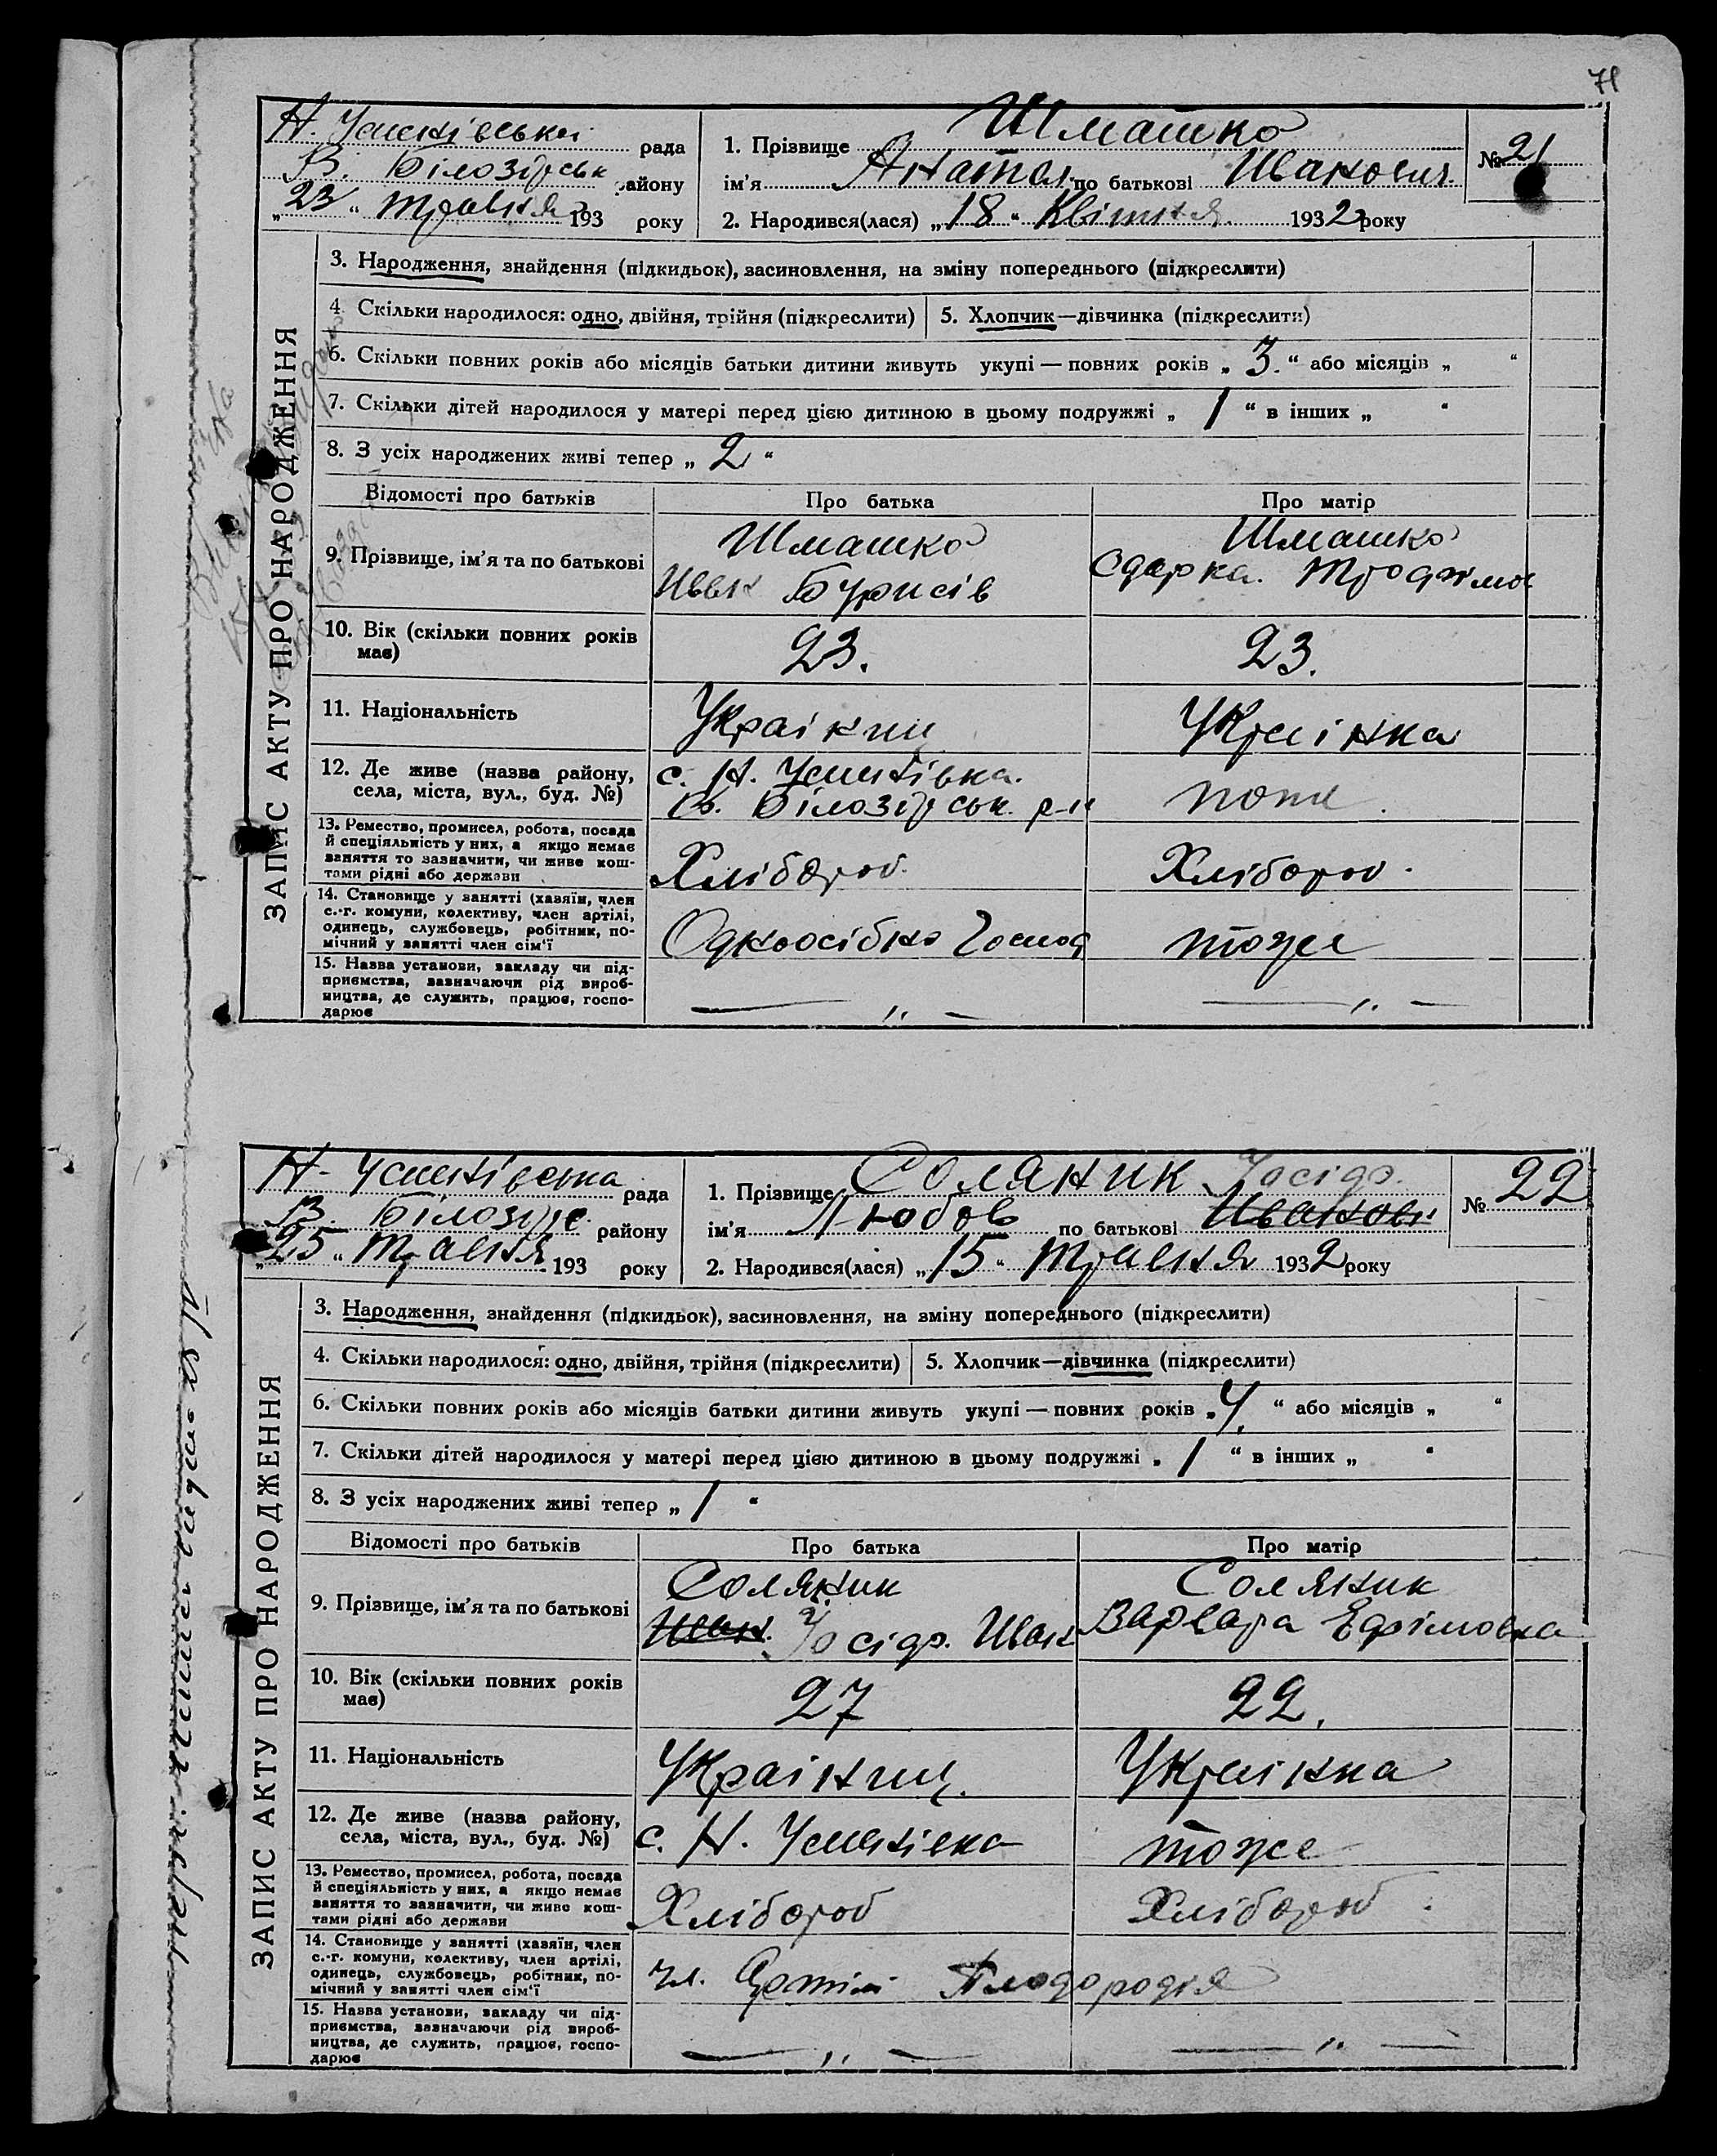 71
Н. Успенівська рада
В. Білозірськ району
„23“ травня 193 року
1. Прізвище Шмашко
ім'я Анатол. по батькові Иванович
2. Народився(лася) „18“ Квітня 1932 року
№ 21
ЗАПИС АКТУ ПРО НАРОДЖЕННЯ
3. Народження, знайдення (підкидьок), засиновлення, на зміну попереднього (підкреслити)
4. Скільки народилося: одно, двійня, трійня (підкреслити) 5. Хлопчик—дівчинка (підкреслити)
6. Скільки повних років або місяців батьки дитини живуть укупі — повних років „3.“ або місяців „ “
7. Скільки дітей народилося у матері перед цією дитиною в цьому подружжі „1“ в інших „ “
8. З усіх народжених живі тепер „2“
Відомості про батьків Про батька Про матір
9. Прізвище, ім'я та по батькові
Шмашко
Иван Бурисів
Шмашко
Одарка. Трофімов
10. Вік (скільки повних років має) 23. 23.
11. Національність Украінец Украінка
12. Де живе (назва району, села, міста, вул., буд. №)
с. Н. Успенівка.
В. Білозірськ. р-н
13. Ремество, промисел, робота, посада
й спеціяльність у них, а якщо немає
заняття то зазначити, чи живе кош-
тами рідні або держави
Хлібороб. Хлібороб.
14. Становище у занятті (хазяїн, член
с.-г. комуни, колективу, член артілі,
одинець, службовець, робітник, по-
мічний у занятті член сім'ї
Одноосібно Господ тоже
15. Назва установи, закладу чи під-
приємства, зазначаючи рід вироб-
ництва, де служить, працює, госпо-
дарює
— „ — — „ —
Н-Успенівська рада
В. Білозірс. району
„25“ Травня 193 року
1. Прізвище Соляник Йосіф.
ім'я Любов по батькові Иванові
2. Народився(лася) „15“ Травня 1932 року
№ 22
ЗАПИС АКТУ ПРО НАРОДЖЕННЯ
3. Народження, знайдення (підкидьок), засиновлення, на зміну попереднього (підкреслити)
4. Скільки народилося: одно, двійня, трійня (підкреслити) 5. Хлопчик—дівчинка (підкреслити)
6. Скільки повних років або місяців батьки дитини живуть укупі — повних років „4.“ або місяців „ “
7. Скільки дітей народилося у матері перед цією дитиною в цьому подружжі „1“ в інших „ “
8. З усіх народжених живі тепер „1“
Відомості про батьків Про батька Про матір
9. Прізвище, ім'я та по батькові
Соляник
Иван. Йосіф. Иван
Соляник
Варвара Ефімовна
10. Вік (скільки повних років має) 27 22.
11. Національність Украінец. Украінка
12. Де живе (назва району, села, міста, вул., буд. №)
с. Н. Успенівка тоже
13. Ремество, промисел, робота, посада
й спеціяльність у них, а якщо немає
заняття то зазначити, чи живе кош-
тами рідні або держави
Хлібороб Хлібороб.
14. Становище у занятті (хазяїн, член
с.-г. комуни, колективу, член артілі,
одинець, службовець, робітник, по-
мічний у занятті член сім'ї
чл. Артіли Плодородія
15. Назва установи, закладу чи під-
приємства, зазначаючи рід вироб-
ництва, де служить, працює, госпо-
дарює
— „ — — „ —